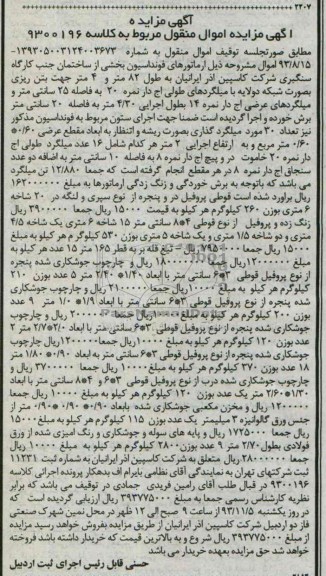 ۲۳۰۷
آگهی مزایده
آگهی مزایده اموال منقول مربوط به کلاسه ۹۳۰۰۱۹۶
مطابق صورتجلسه توقیف اموال منقول به شماره ۱۳۹۳۰۵۰۰۳۱۲۴۰۰۳۶۷۳-
۹۳/۸/۱۵ اموال مشروحه ذیل ارماتورهای فونداسیون بخشی از ساختمان جنب کارگاه
سنگبری شرکت کاسپین آذر ایرانیان به طول ۸۲ متر و ۴ متر جهت بتن ریزی
بصورت شبکه دولایه با میلگردهای طولی اج دار نمره ۲۰ به فاصله ۲۵ سانتی متر و
میلگردهای عرضی اج دار نمره ۱۴ بطول اجرایی ۴/۳۰ متر به فاصله ۲۰ سانتی متر
برش خورده و اجرا گردیده است ضمنا جهت اجرای ستون مربوط به فونداسیون مذکور
نیز تعداد ۳۰ مورد میلگرد گذاری بصورت ریشه و انتظار به ابعاد مقطع عرضی ۰/۶۰*
۰/۶۰ متر مربع و به ارتفاع اجرایی ۲ متر هر کدام شامل ۱۶ عدد میلگرد طولی اج
دار نمره ۲۰ خاموت و در پیچ اج دار نمره ۸ به فاصله ۱۰ سانتی متر به اضافه دو عدد
سنجاق اج دار نمره ۸ در هر مقطع انجام گرفته است که جمعا ۱۲/۸۸۰ تن میلگرد
می باشد که باتوجه به برش خوردگی و زنگ زدگی ارماتورها به مبلغ ۱۶۲۰۰۰۰۰۰
ریال برآورد شده است قوطی پروفیل در و پنجره از نوع سپری و لنگه در ۲۰ شاخه
۶ متری بوزن ۲۶۰ کیلوگرم هر کیلو به قیمت ۱۵۰۰۰ ریال جمعا ۳۹۰۰۰۰۰ ریال
زنگ زده و پروفیل از نوع قوطی ۴*۸ سانتی متر ۱۵ شاخه ۶ متری یک شاخه ۴/۵
متری و دو شاخه ۱/۵ متری و یک شاخه ۵ متری بوزن ۵۳۰ کیلوگرم هر کیلو به مبلغ
۱۵۰۰۰ ریال جمعا ۷۹۵۰۰۰۰ ریال - تیغ قله بر به قطر ۱۶۵ متر ۱۵ عدد هر کدام به
مبلغ ۱۲۰۰۰۰۰ ریال جمعا ۱۸۰۰۰۰۰۰ ریال و چارچوب جوشکاری شده پنجره
از نوع پروفیل قوطی ۳*۶ سانتی متر با ابعاد ۱/۴۰* ۲/۴۰ متر ۵ عدد بوزن ۲۱۰
کیلوگرم هر کیلو به مبلغ ۱۰۰۰۰ ریال جمعا ۲۱۰۰۰۰۰ ریال و چارچوب جوشکاری
شده پنجره از نوع پروفیل قوطی ۳*۶ سانتی متر با ابعاد ۱/۹* ۱/۰ متر ۹ عدد
بوزن ۲۰۰ کیلوگرم هر کیلو به مبلغ ۱۰۰۰۰ ریال جمعا ۲۰۰۰۰۰۰ ریال و چارچوب
جوشکاری شده پنجره از نوع پروفیل قوطی ۳*۶ سانتی متر با ابعاد ۲/۰*۲/۷ متر ۲
عدد بوزن ۱۲۰ کیلوگرم هر کیلو به مبلغ ۱۰۰۰۰ ریال جمعا ۱۲۰۰۰۰۰ ریال چارچوب
جوشکاری شده پنجره از نوع پروفیل قوطی ۳*۶ سانتی متر به ابعاد ۰/۹۰* ۱/۸۰ متر
۱۸ عدد بوزن ۳۷۰ کیلوگرم هر کیلو به مبلغ ۱۰۰۰۰ ریال جمعا ۳۷۰۰۰۰۰ ریال و
چارچوب جوشکاری شده درب از نوع پروفیل قوطی ۳*۶ و ۴*۸ سانتی متر با ابعاد
۱/۳۰*۲/۶۰ متر یک عدد بوزن ۱۲۰ کیلوگرم هر کیلو به مبلغ ۱۰۰۰۰ ریال جمعا
۱۲۰۰۰۰۰ ریال و مخزن مکعبی جوشکاری شده بابعاد ۰/۹۰* ۰/۹۰* ۰/۹۰ متر از
جنس ورق گالوانیزه ۳ میلیمتر یک عدد بوزن ۱۱۵ کیلوگرم هر کیلو به مبلغ ۱۵۰۰۰
ریال جمعا ۱۷۲۵۰۰۰ ریال و پایه های سوله و جوشکاری و رنگ امیزی شده از ورق
فولادی بطول ۲/۷۰ متر ۹ عدد بوزن ۲۸۰۰ کیلوگرم هر کیلو به مبلغ ۱۰۰۰۰ ریال
جمعا ۲۸۰۰۰۰۰۰ ریال متعلق به شرکت کاسپین آذر ایرانیان به شماره ثبت ۱۱۲۳۱
ثبت شرکتهای تهران به نمایندگی آقای نظامی بایرام اف بدهکار پرونده اجرائی کلاسه
۹۳۰۰۱۹۶ در قبال طلب آقای رامین فریدی جمادی در توقیف می باشد که برابر
نظریه کارشناس رسمی جمعا به مبلغ ۳۹۳۷۷۵۰۰۰ ریال ارزیابی گردیده است که
در روز یکشنبه ۹۳/۱۱/۵ از ساعت ۹ صبح الی ۱۲ ظهر در محل نمین شهرک صنعتی
فاز دو اردبیل شرکت کاسپین آذر ایرانیان از طریق مزایده بفروش خواهد رسید مزایده
از مبلغ ۳۹۳۷۷۵۰۰۰ ریال شروع و به بالاترین قیمت که خریدار داشته باشد فروخته
خواهد شد حق مزایده بعهده خریدار می باشد
حسنی قابل رئیس اجرای ثبت اردبیل